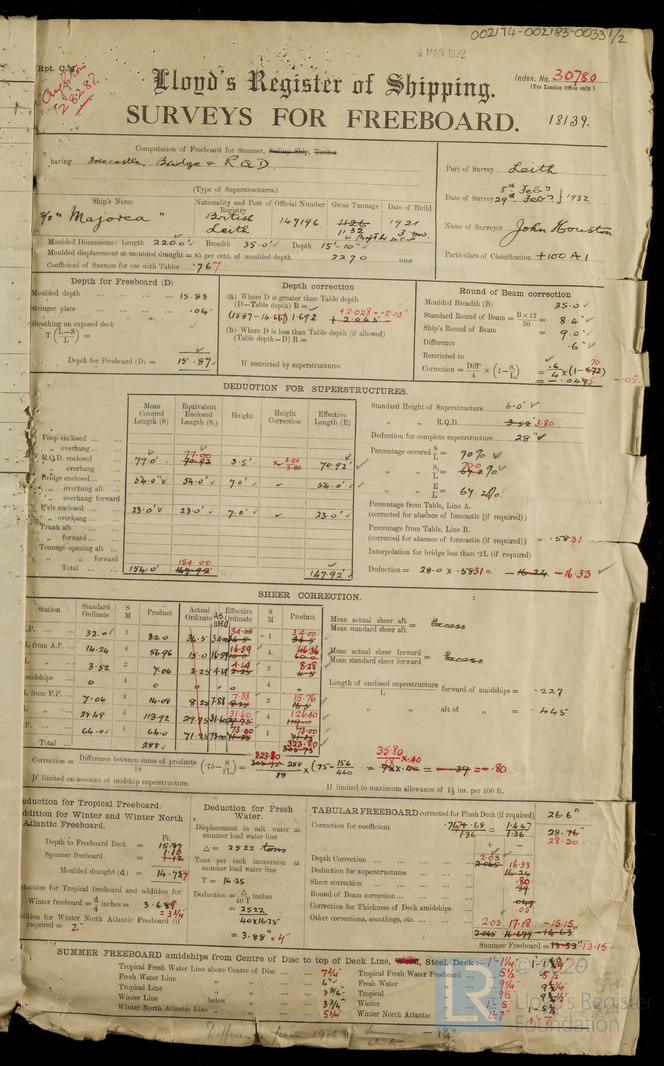 002174-002183-0033 1/2
4 MAR 1932
Rpt. C.
Lloyd's Register of Shipping.
Index. No. 30780
(For London Office only.)
SURVEYS FOR FREEBOARD.
18139.
Computation of Freeboard for Steamer, Sailing Ship, Tanker
having Forecastle, Bridge & R.Q.D.
(Type of Superstructures.)
Port of Survey Leith
Date of Survey 5th Feby 29th Feby } 1932
Name of Surveyor John Houston
Particulars of Classification +100 A1
Ship's Name
Nationality and Port of Registry
Official Number
Gross Tonnage
Date of Build
S/S "Majorca"
British
Leith
147196
1126
1132
1921
3 mo.
Moulded Dimensions: Length 220.0' Breadth 35.0' Depth 15'-10"
Moulded displacement at moulded draught = 85 per cent. of moulded depth 2270 tons
Coefficient of fineness for use with Tables .767
Depth for Freeboard (D)
Moulded depth ... 15.83
Stringer plate ... .04
Sheathing on exposed deck
T (L-S/L) =
Depth for Freeboard (D) = 15.87
Depth correction
(a) Where D is greater than Table depth
(D—Table depth) R =
(15.87-14.66) 1.692 + 2.045
+2.028 = +2.03"
(b) Where D is less than Table depth (if allowed)
(Table depth—D) R =
If restricted by superstructures
Round of Beam correction
Moulded Breadth (B) 35.0
Standard Round of Beam = B×12/50 = 8.4
Ship's Round of Beam = 9.0
Difference .6
Restricted to
Correction = Diff/4 × (1-S/L) = .6/4 × (1-.672) .70
= -.0495 -.05
DEDUCTION FOR SUPERSTRUCTURES.
Mean Covered Length (S)
Equivalent Enclosed Length (S₁)
Height
Height Correction
Effective Length (E)
Poop enclosed
" overhang
R.Q.D. enclosed 77.0' 77.00 70.92 3.5' × 3.50/3.80 70.92'
" overhang
Bridge enclosed 54.0' 54.0' 7.0' 54.0'
" overhang aft
" overhang forward
F'cle enclosed 23.0' 23.0' 7.0' 23.0'
" overhang
Trunk aft
" forward
Tonnage opening aft
" forward
Total 154.0' 154.00 147.92 147.92'
Standard Height of Superstructure 6.0'
" " R.Q.D. 3.52' 3.80
Deduction for complete superstructure 28"
Percentage covered S/L = 70%
" S₁/L = 70.0 67.2%
" E/L = 67.2%
Percentage from Table, Line A.
(corrected for absence of forecastle (if required))
Percentage from Table, Line B.
(corrected for absence of forecastle (if required)) = .5831
Interpolation for bridge less than .2L (if required)
Deduction = 28.0 × .5831 = -16.24 -16.33
SHEER CORRECTION.
Station
Standard Ordinate
S M
Product
Actual Ordinate
AS USED
Effective Ordinate
S M
Product
A.P. 32.0 1 32.0 36.5 34.00 34.00 1 34.00
L from A.P. 14.24 4 56.96 15.0 16.59 16.59 4 66.36
L " 3.52 2 7.04 2.25 4.14 4.14 2 8.28
Amidships 0 4 0 0 0 0 4 0
L from F.P. 7.04 2 14.08 8.25 7.88 7.88 2 15.76
L " 28.48 4 113.92 29.75 31.60 31.60 4 126.40
F.P. 64.0 1 64.0 71.25 73.00 73.00 1 73.00
Total 288 323.80
Mean actual sheer aft / Mean standard sheer aft = Excess
Mean actual sheer forward / Mean standard sheer forward = Excess
Length of enclosed superstructure / L forward of amidships = .227
" " aft of " = .445
Correction = Difference between sums of products / 18 (.75 - S/2L) = 323.80 - 288 / 18 × (.75 - 154/440) = 35.80/18 × .40 = -.39 = -.80
If limited on account of midship superstructure.
If limited to maximum allowance of 1½ ins. per 100 ft.
Deduction for Tropical Freeboard.
Addition for Winter and Winter North Atlantic Freeboard.
Ft.
Depth to Freeboard Deck = 15.87
Summer freeboard = 1.10 1.12
Moulded draught (d) = 14.757
Deduction for Tropical freeboard and addition for Winter freeboard = d/4 inches = 3.689 = 3¾"
Addition for Winter North Atlantic Freeboard (if required) = 2"
Deduction for Fresh Water.
Displacement in salt water at summer load water line
Δ = 2522 tons
Tons per inch immersion at summer load water line
T = 16.25
Deduction = Δ/40T inches
= 2522
40×16.25
= 3.88" = 4"
TABULAR FREEBOARD corrected for Flush Deck (if required) 26.6"
Correction for coefficient .767+.68/1.36 = 1.447/1.36 28.16
28.20
+ −
Depth Correction 2.03 2.045
Deduction for superstructures 16.33 16.24
Sheer correction .80 .39
Round of Beam correction .049
Correction for Thickness of Deck amidships .05
Other corrections, scantlings, etc.
2.03 17.18 -15.15
2.045 16.679 -14.63
Summer Freeboard = 13.53 13.15
SUMMER FREEBOARD amidships from Centre of Disc to top of Deck Line, Wood, Steel, Deck :— 1'-1¼"
Tropical Fresh Water Line above Centre of Disc 7¾"
Fresh Water Line " " 4"
Tropical Line " " 3¾"
Winter Line below " " 3¾"
Winter North Atlantic Line " " 5¾"
Tropical Fresh Water Freeboard 5½"
Fresh Water " 9¼"
Tropical " 9½"
Winter " 1'-5"
Winter North Atlantic " 1'-7"
© 2020
LR
Lloyd's Register
Foundation